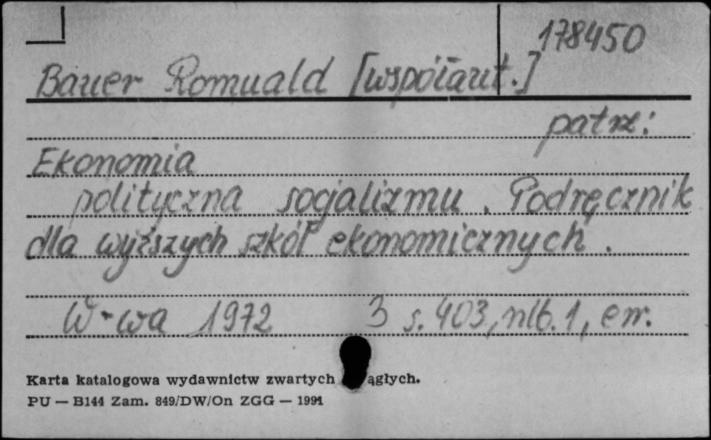 178450
Bauer Romuald [współaut.]
patrz:
Ekonomia
polityczna socjalizmu. Podręcznik
dla wyższych szkół ekonomicznych.
W-wa 1972 3 s. 403, nlb. 1, err.
Karta katalogowa wydawnictw zwartych ągłych.
PU — B144 Zam. 849/DW/On ZGG — 1991